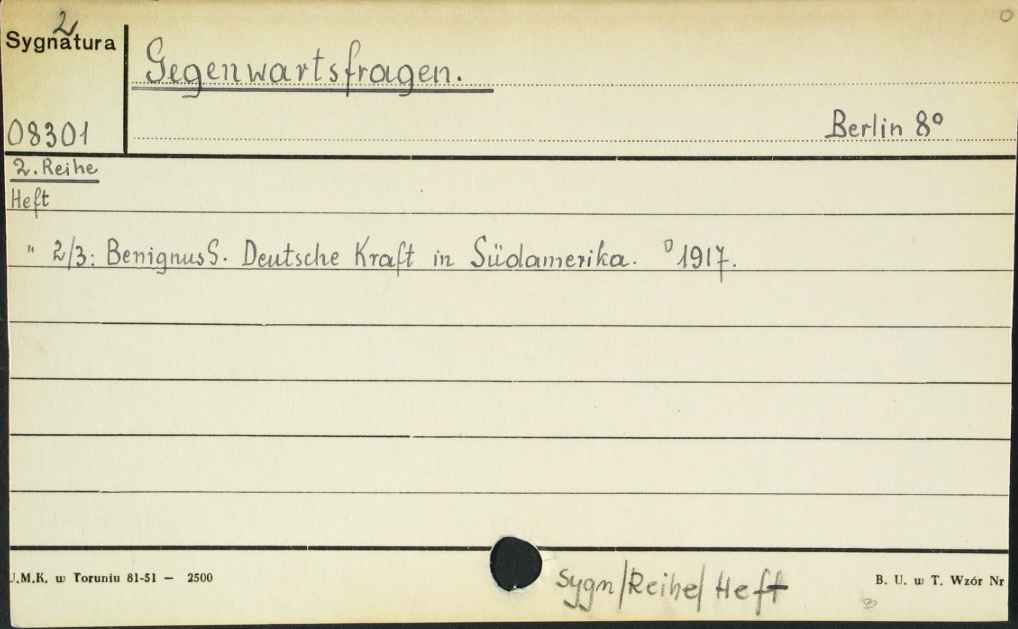 2
Sygnatura
Gegenwartsfragen.
08301
Berlin 8°
2. Reihe
Heft
" 2/3: Benignus S. Deutsche Kraft in Südamerika. 1917.
U.M.K. w Toruniu 81-51 — 2500
Sygn/Reihe/Heft
B. U. w T. Wzór Nr